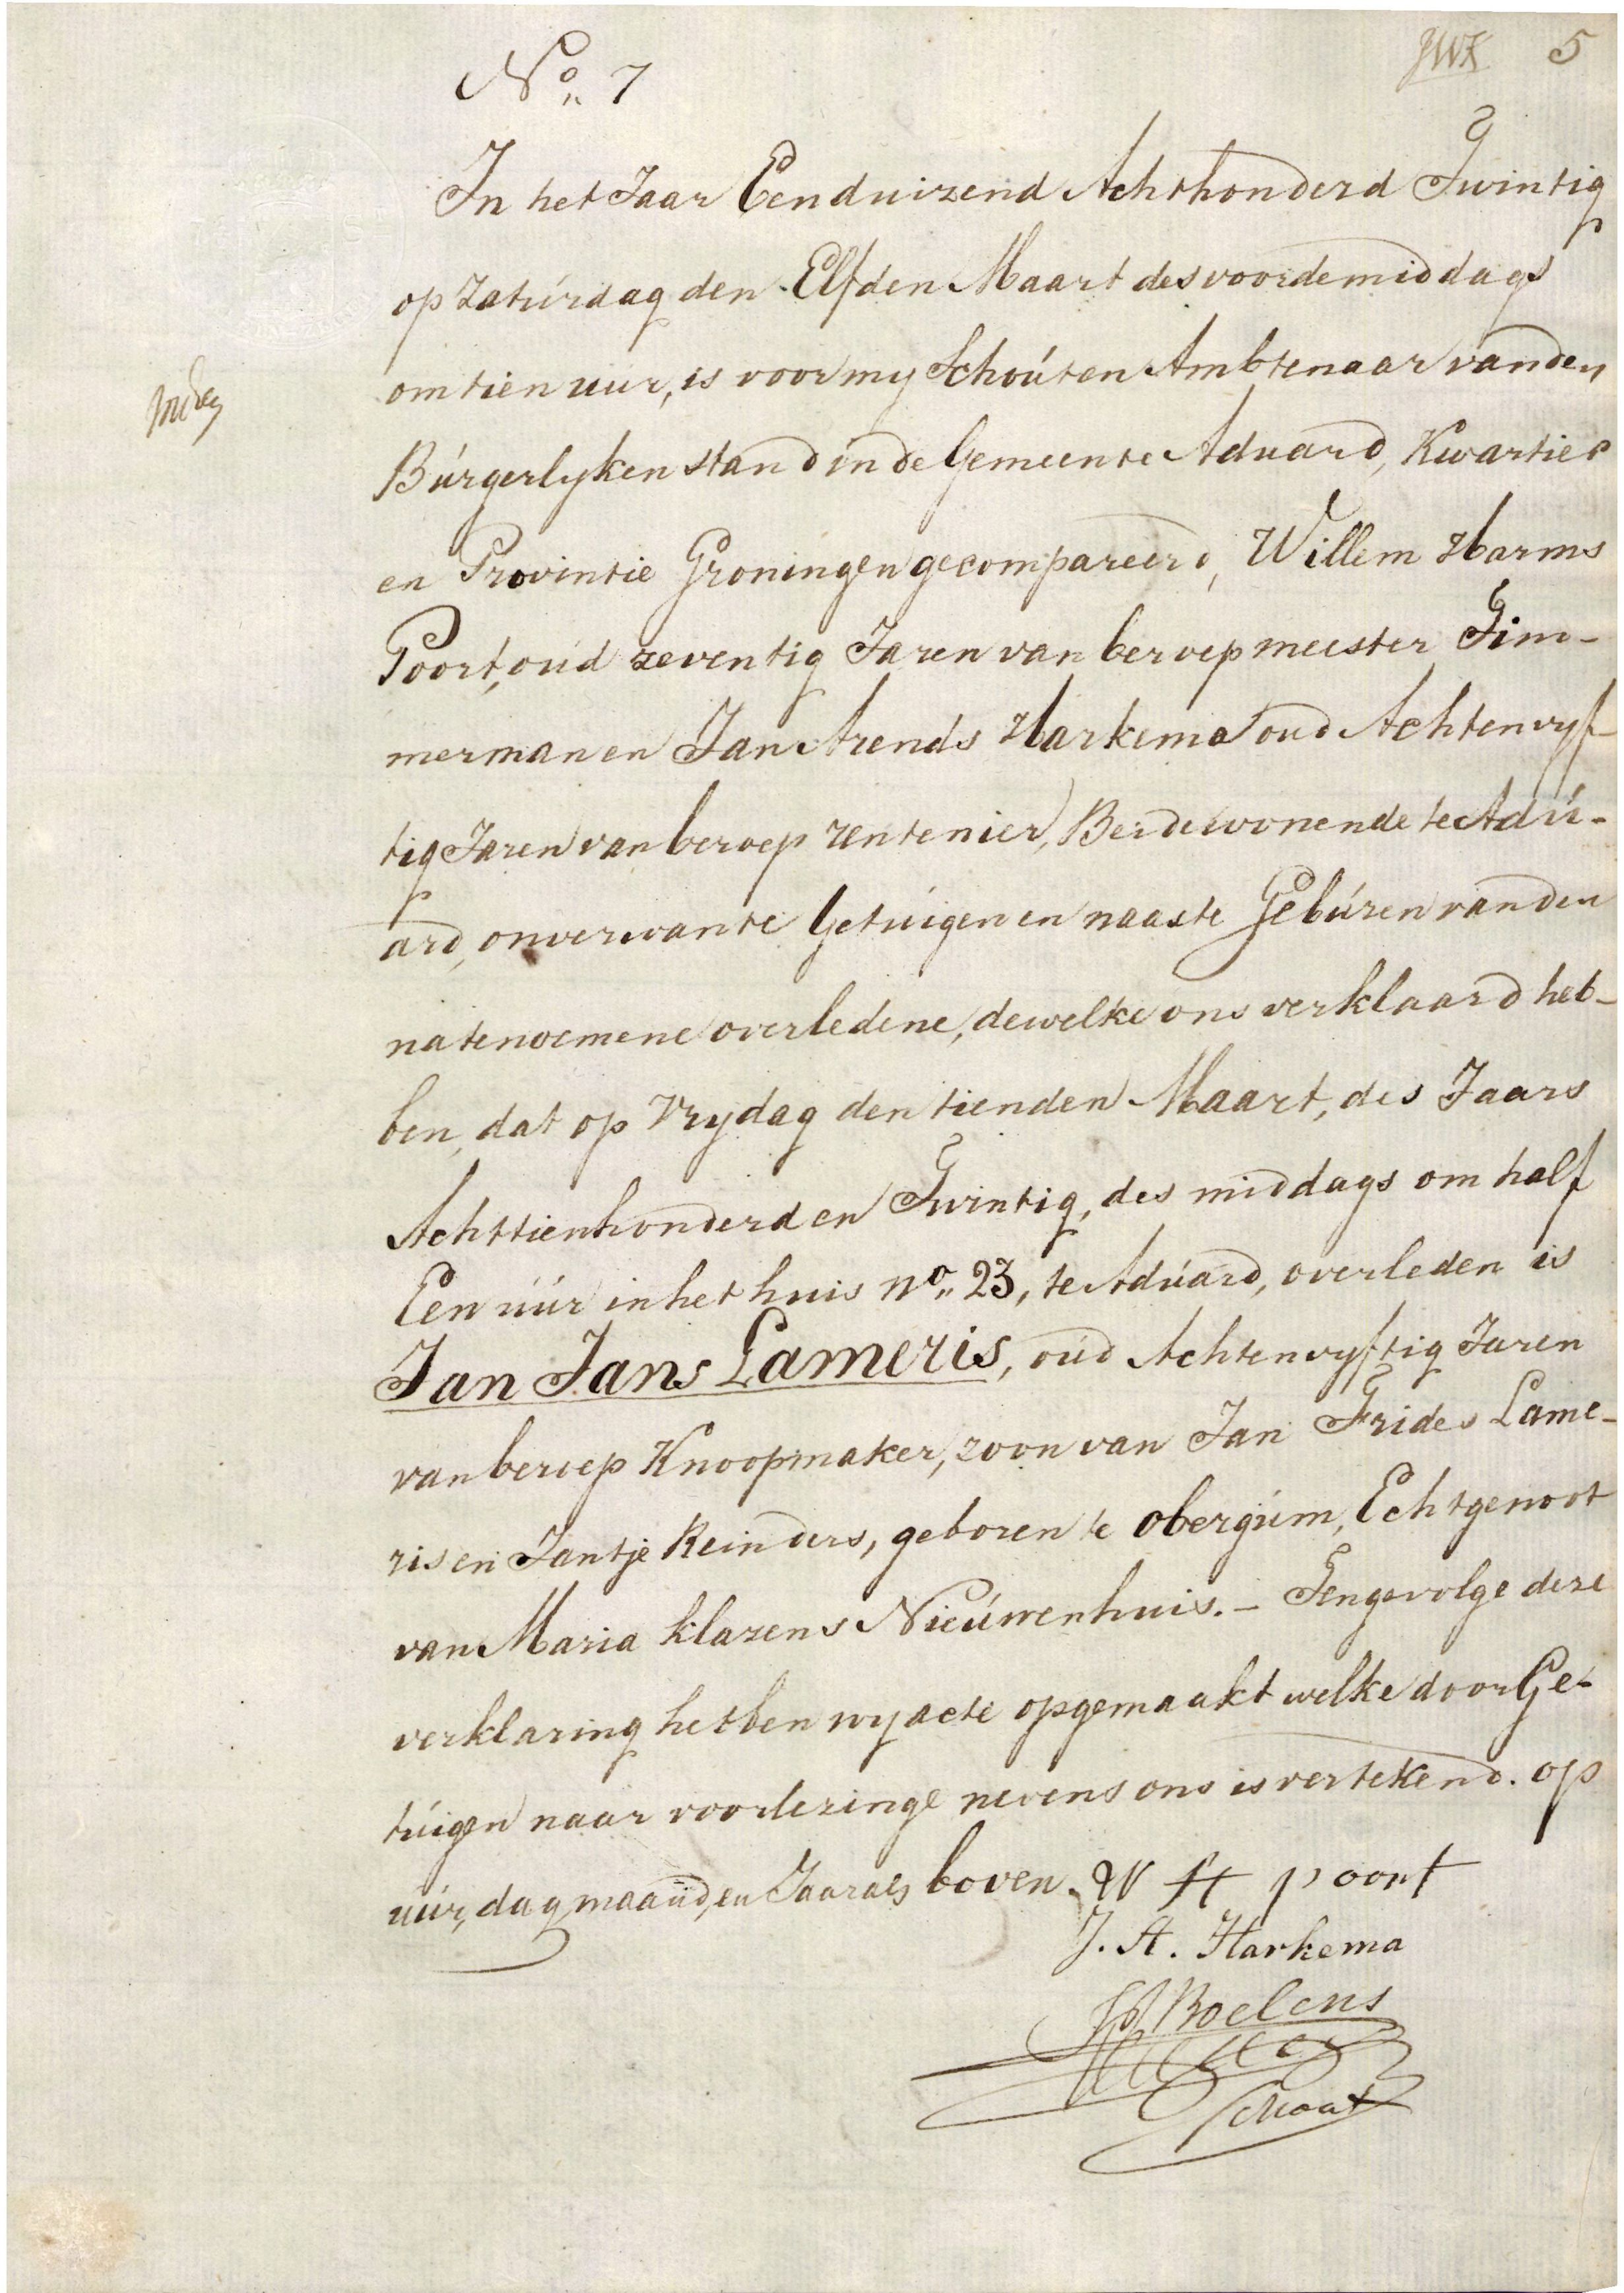 JWK 5
No. 7
In het Jaar Eenduizend Achthonderd Twintig
op Zaturdag den Elfden Maart des voordemiddags
om tien uur, is voor my Schout en Ambtenaar van den
Burgerlyken stand in de Gemeente Aduard, Kwartier
en Provintie Groningen gecompareerd, Willem Harms
Poort, oud zeventig Jaren van beroep meester Tim-
merman en Jan Arends Harkema oud Achtenvyf-
tig Jaren van beroep rentenier, Beide wonende te Adu-
ard, onverwante Getuigen en naaste Geburen van den
natenoemene overledene, dewelke ons verklaard heb-
ben, dat op Vrydag den tienden Maart, des Jaars
Achttienhonderd en Twintig, des middags om half
Een uur in het huis No. 23, te Aduard, overleden is
Jan Jans Lameris, oud Achtenvyftig Jaren
van beroep Knoopmaker, zoon van Jan Frides Lame-
ris en Jantje Reinders, geboren te obergum, Echtgenoot
van Maria Klazens Nieuwenhuis. - Tengevolge deze
verklaring hebben wy acte opgemaakt welke door Ge-
tuigen naar voorlezinge nevens ons is vertekend. op
uur, dag, maand, en Jaar als boven. W H poort
J. A. Harkema
Boelens
Schout